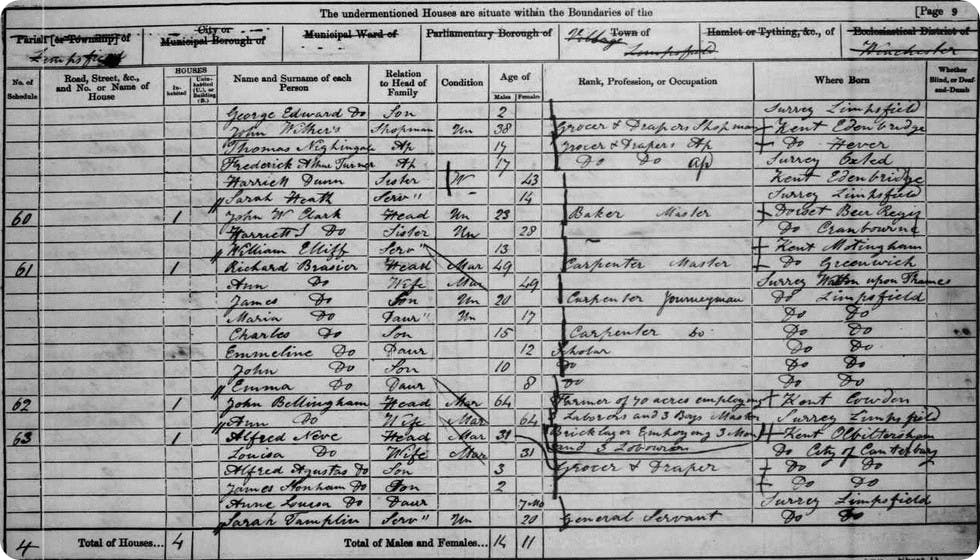 The undermentioned Houses are situate within the Boundaries of the [Page 9
Parish [or Township] of City or Municipal Borough of Municipal Ward of Parliamentary Borough of Village Town of Hamlet or Tything, &c., of Ecclesiastical District of
Limpsfield Limpsfield
No. of Schedule Road, Street, &c., and No. or Name of House HOUSES In-habited Unin-habited (U.), or Building (B.) Name and Surname of each Person Relation to Head of Family Condition Age of Males Females Rank, Profession, or Occupation Where Born Whether Blind, or Deaf-and-Dumb
George Edward Do Son 2 Surrey Limpsfield
John Shopman Un 38 Grocer & Drapers Shopman Kent Edenbridge
Thomas Nighingale Ap 17 Grocer & Drapers Ap Do Hever
Frederick Turner Ap 17 Do Do Ap Surrey Oxted
Harriett Dunn Sister W 43 Kent Edenbridge
Sarah Heath Serv" 14 Surrey Limpsfield
60 1 John W Clark Head Un 23 Baker Master Dorset Beer Regis
Harriett S Do Sister Un 28 Do Cranbourne
William Elliff Serv" 13 Kent Motingham
61 1 Richard Brasier Head Mar 49 Carpenter Master Do Greenwich
Ann Do Wife Mar 49 Surrey upon Thames
James Do Son Un 20 Carpenter Journeyman Do Limpsfield
Maria Do Daur" Un 17 Do Do
Charles Do Son 15 Carpenter Do Do Do
Emmeline Do Daur 12 Scholar Do Do
John Do Son 10 Do Do Do
Emma Do Daur 8 Do Do Do
62 1 John Bellingham Head Mar 64 Farmer of 70 acres employing Kent Cowden
Ann Do Wife Mar 64 Laborers and 3 Boys Master Surrey Limpsfield
63 1 Alfred Neve Head Mar 31 Bricklayer Employing 3 Men Kent
Louisa Do Wife Mar 31 and 3 Labourers Do City of Canterbury
Alfred Agustas Do Son 3 Grocer & Draper Do Do
James Do Son 2 Do Do
Anne Louisa Do Daur 7 Mo Surrey Limpsfield
Sarah Tamplin Serv" Un 20 General Servant Do Do
4 Total of Houses... 4 Total of Males and Females... 14 11